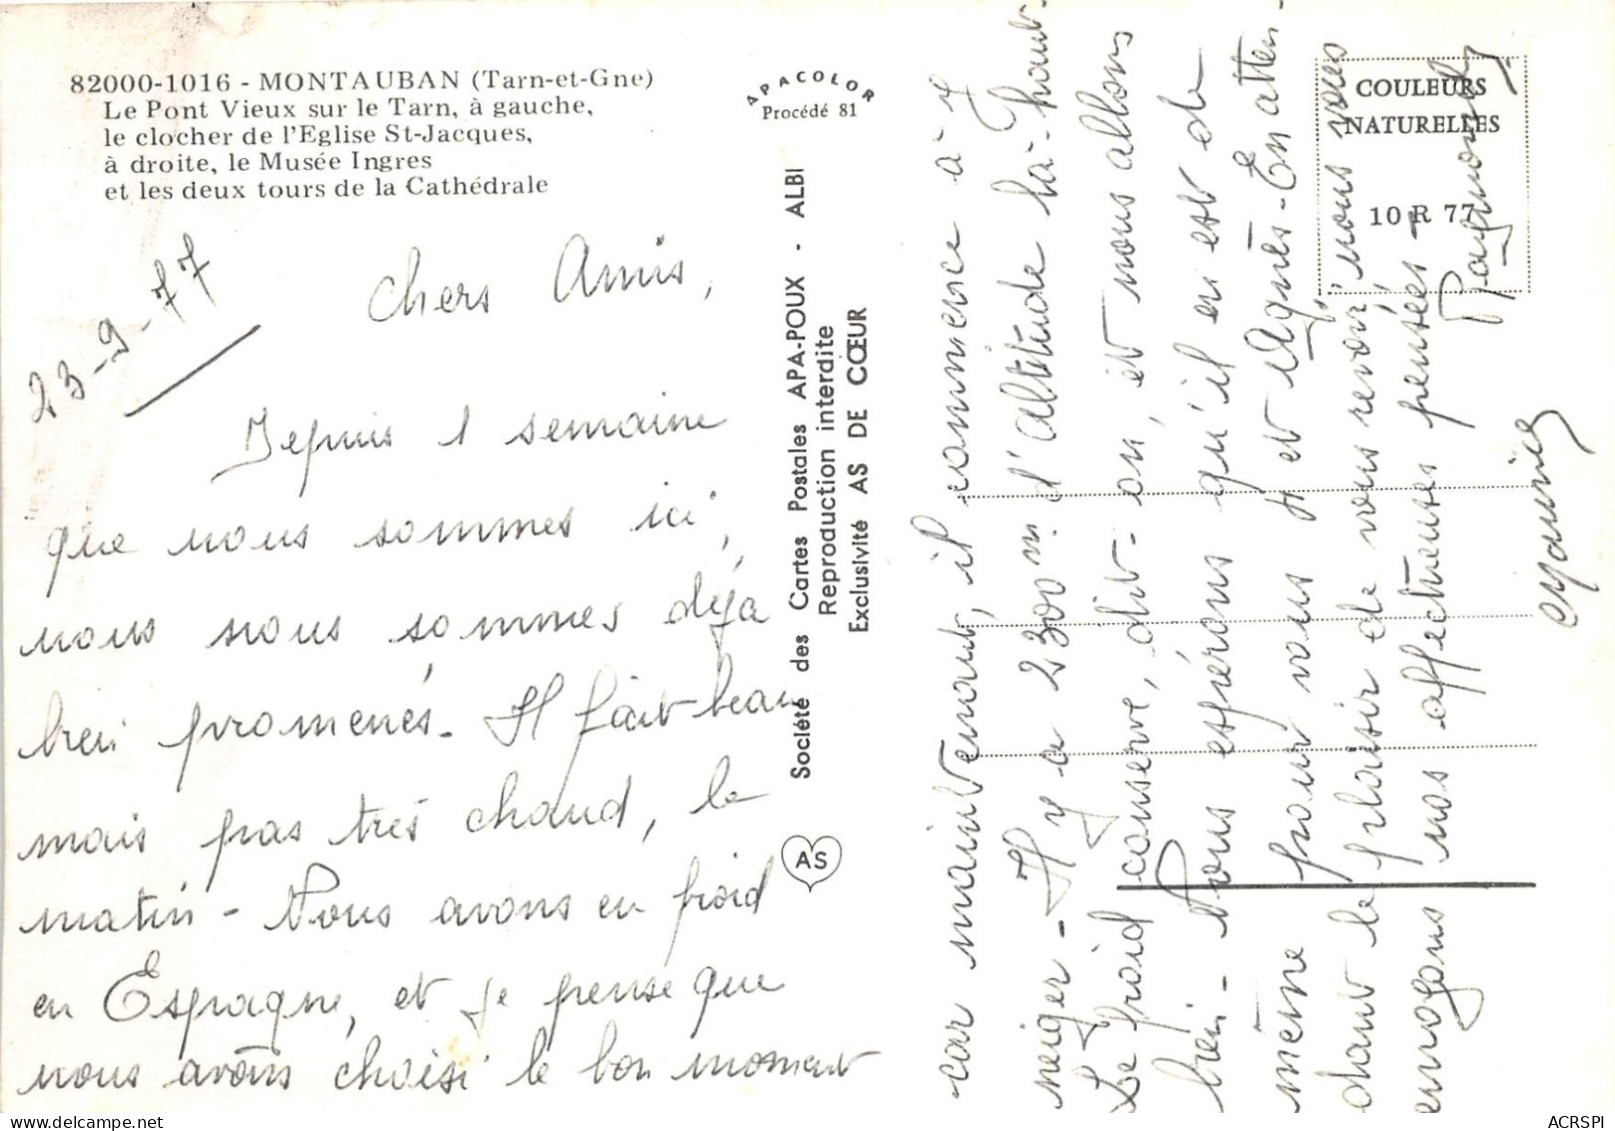 82000-1016 - MONTAUBAN (Tarn-et-Gne)
Le Pont Vieux sur le Tarn, à gauche,
le clocher de l'Eglise St-Jacques,
à droite, le Musée Ingres
et les deux tours de la Cathédrale
APACOLOR
Procédé 81
23-9-77
Chers Amis,
Depuis 1 semaine
que nous sommes ici,
nous nous sommes déjà
bien promenés. Il fait beau
mais pas très chaud, le
matin - Nous avons eu froid
en Espagne, et je pense que
nous avons choisi le bon moment
Société des Cartes Postales APA-POUX - ALBI
Reproduction interdite
Exclusivité AS DE CŒUR
AS
car maintenant, il commence à y
neiger - Il y a 2300 m d'altitude là-haut.
Le froid conserve, dit-on, et nous allons
bien - Nous espérons qu'il en est de
même pour vous 4 et Agnès - En atten
dant le plaisir de vous revoir, nous vous
envoyons nos affectueuses pensées -
Raymonde
COULEURS
NATURELLES
10 R 77
ACRSPI